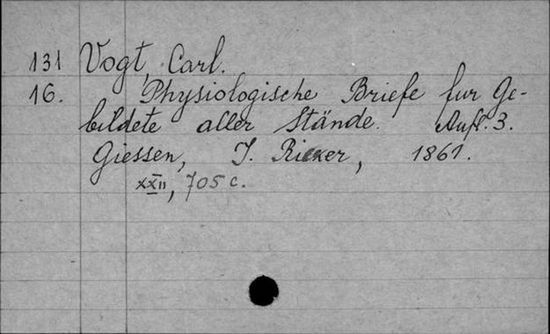 131 Vogt, Carl.
16. Physiologische Briefe fur Ge-
bildete aller Stände. Aufl. 3.
Giessen, J. Ricker, 1861.
XXII, 705 c.